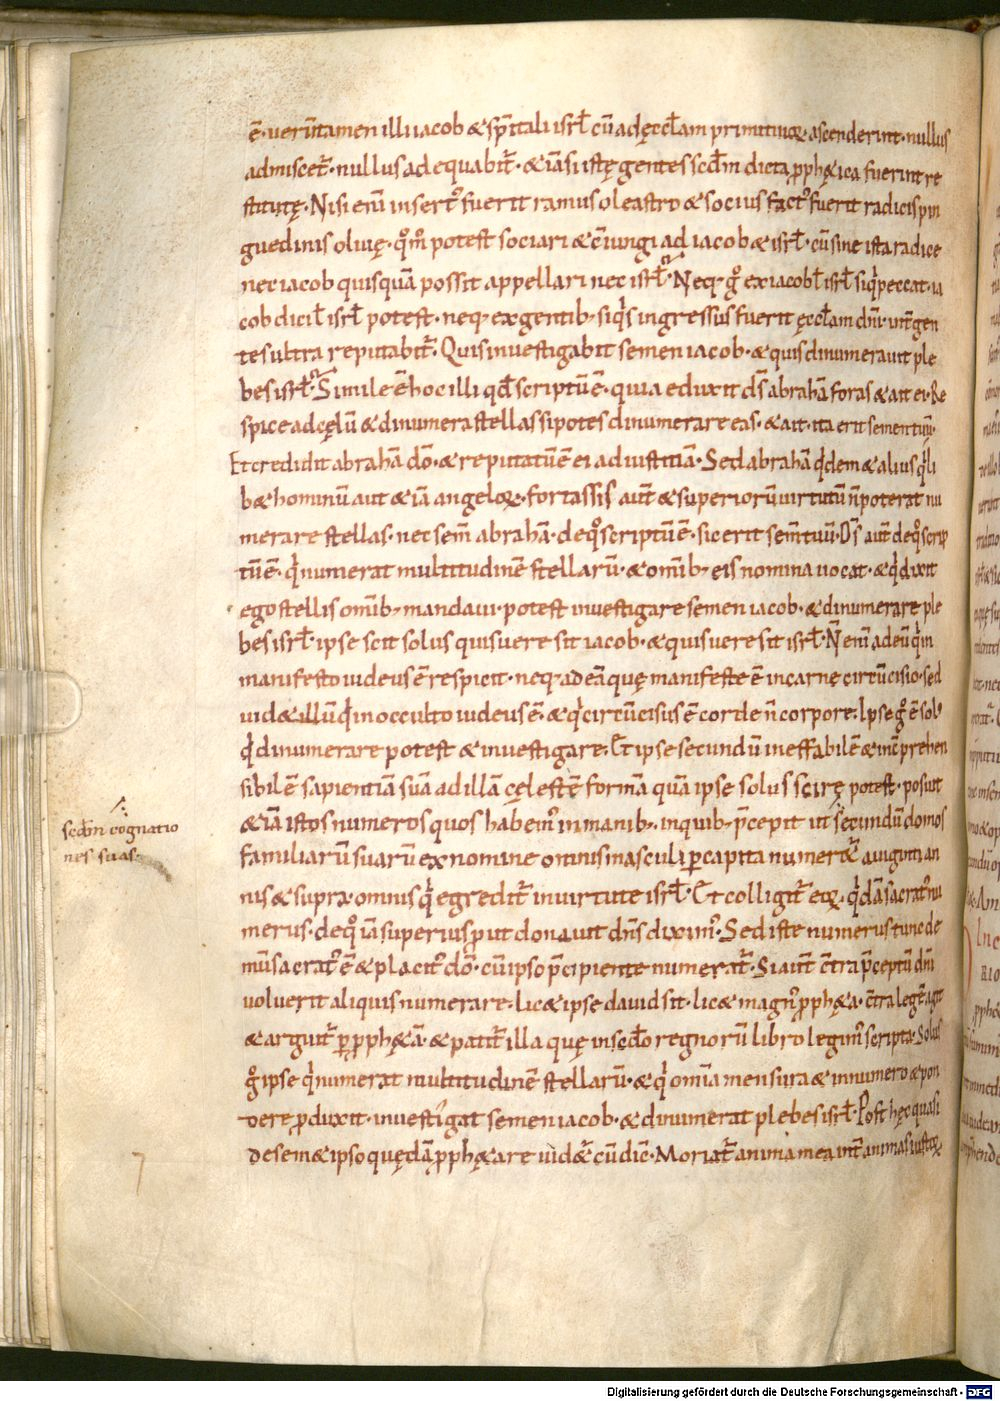 ē· uerūtamen illi iacob & sp̄itali isrł cū adęccłam primitiuoꝝ· ascenderint· nullus
admiscet̄· nullus adequabit̄· & iāsi istę gentes scđm dicta ꝓph&ica fuerint re
stitutę· Nisi enī insert᷒ fuerit ramus oleastro & socius fact᷒ fuerit radicis pin
guedinis oliuę· qm̊ potest sociari & c̄iungi ad iacob & isrł· cū sine ista radice
nec iacob quisquā possit appellari nec isrł· Neq· g̊ ex iacob ł isrł siq̇s peccat· ia
cob dici ł isrł potest· neq· ex gentib· siq̇s ingressus fuerit ęccłam dn̄i· int̄ gen
tes ultra reputabit̄· Quis inuestigabit semen iacob· & quis dinumerauit ple
bes isrł· Simile ē hoc illi qđ scriptū ē· quia eduxit ds̄ abrahā foras & ait ei· Re
spice ad cęlū & dinumera stellas si potes dinumerare eas· & ait· ita erit semen tuū·
Et credidit abrahā dō· & reputatū ē ei ad iustitiā· Sed abrahā q̇dem & alius q̇li
b& hominū aut & iā angeloꝝ· fortassis aut̄ & superiorū uirtutū n̄ poterat nu
merare stellas· nec sem̄ abrahā· de q̊ scriptū ē· sic erit sem̄ tuū· Ds̄ aut̄ de q̊ scrip
tū ē· q̇ numerat multitudinē stellarū· & om̄ib· eis nomina uocat· & q̇ dixit
ego stellis om̄ib· mandaui· potest inuestigare semen iacob· & dinumerare ple
bes isrł· ipse scit solus quis uere sit iacob· & quis uere sit isrł· N̄ enī ad eū q̇ in
manifesto iudeus ē respicit· neq· ad eā quę manifeste ē in carne circūcisio· sed
uid& illū q̇ in occulto iudeus ē· & q̇ circūcisus ē corde n̄ corpore· Ipse g̊ ē solus
q̇ dinumerare potest & inuestigare· Et ipse secundū ineffabilē & inc̄prehen
sibilē sapientiā suā ad illā cęlestē formā quā ipse solus scirę potest· posuit
& iā istos numeros quos habem᷒ in manib· in quib· p̄cepit ut secundū domos
familiarū suarū ex nomine omnis masculi per capita numer&̄ a uiginti an
nis & supra· omnis q̇ egredit̄ in uirtute isrł· Et colligit̄ ex eoꝝ· q̇dā sacrat᷒ nu
merus· de q̊ iā superius ꝓut donauit dn̄s dixim᷒· Sed iste numerus tunc de
mū sacrat᷒ ē & placit᷒ dō· cū ipso p̄cipiente numerat̄· Si aut̄ c̄tra p̄ceptū dn̄i
uoluerit aliquis numerare· lic& ipse dauid sit· lic& magn᷒ ꝓph&a· c̄tra legē agit
& arguit̄ p̱ ꝓph&ā· & patit̄ illa quę in scđo regnorū libro legim᷒ scripta· Solus
g̊ ipse q̇ numerat multitudinē stellarū· & q̇ omīa mensura & in numero & pon
dere ꝓduxit· inuestigat semen iacob· & dinumerat plebes isrł· Post hęc quasi
de sem&ipso quędā ꝓph&are uid&̄ cū dic̄· Moriat̄ anima mea int̄ animas iustoꝝ·
scđm cognatio
nes suas